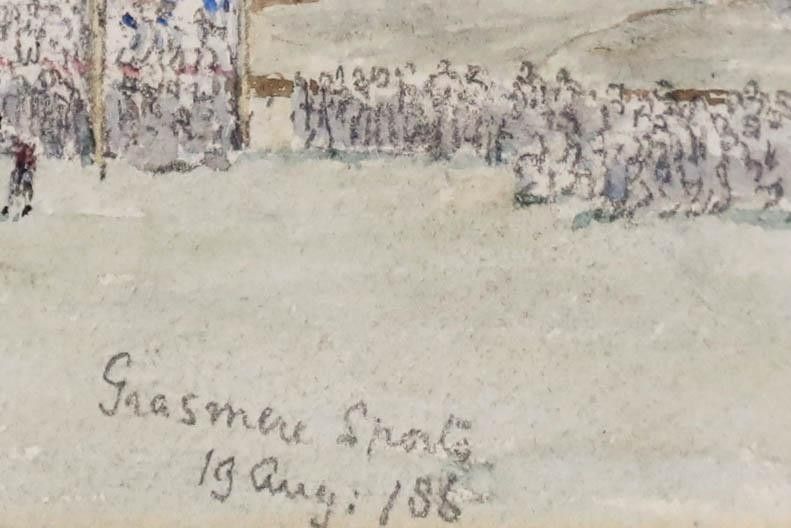 Grasmere Sports
19 Aug: 188